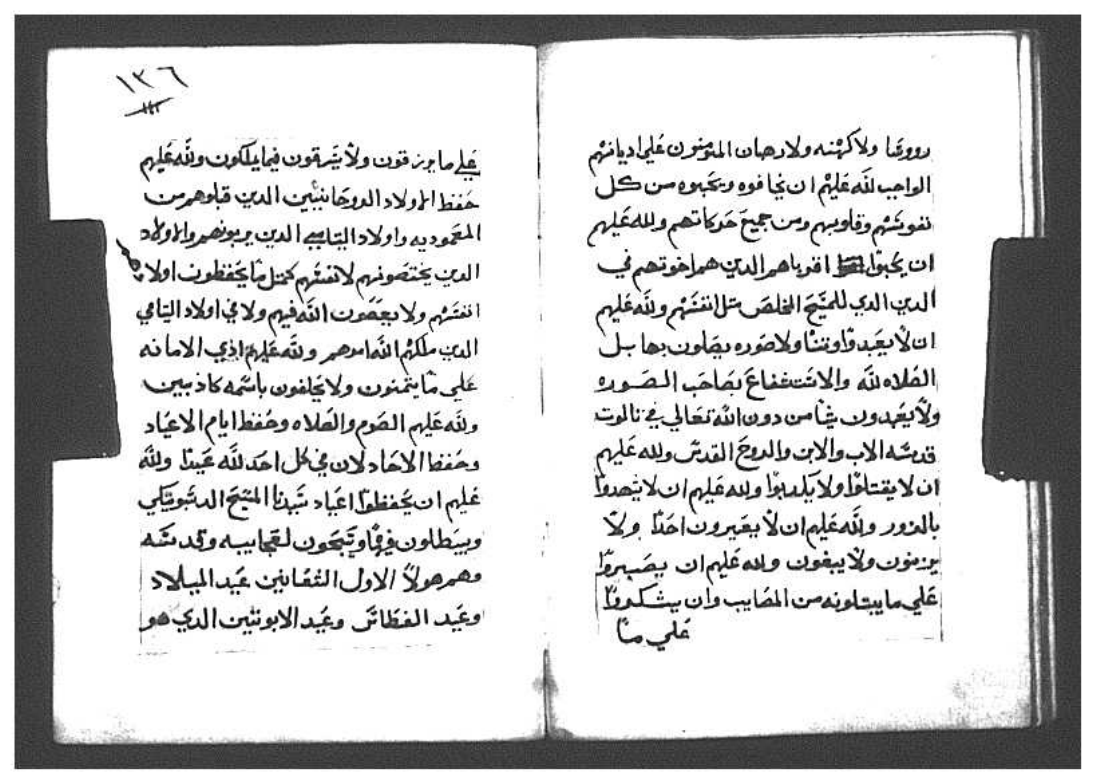 رووعا ولا كهنه ولا رهبان المومنون علي اديانهم
الواجب لله عليهم ان يخافوه ويحبوه من كل
نفوسهم وقلوبهم ومن جميع حركاتهم ولله عليهم
ان يحبوا اقرباهم الدين هم اخوتهم في
الدين الدي للمسيح المخلص مثل انفسهم ولله عليهم
ان لا يعبدوا وتنا ولا صوره يصلون بها بل
الصلاه لله والاستشفاع بصاحب الصوره
ولا يعبدون شيا من دون الله تعالي في تالوت
قدسه الاب والابن والروح القدس ولله عليهم
ان لا يقتلوا ولا يكدبوا ولله عليهم ان لا يشهدوا
بالزور ولله عليهم ان لا يعيرون احدا ولا
يزمنون ولا يبغون ولله عليهم ان يصبروا
علي ما يبتلونه من المصايب وان يشكروا
علي ما
١٣٦
علي ما يرزقون ولا يسرقون فيما يملكون ولله عليهم
حفظ الاولاد الروحانيين الدين قبلوهم من
المعموديه واولاد اليتامي الدين يربونهم والاولاد
الدين يختصونهم لانفسهم كمتل ما يحفظون اولاد
انفسهم ولا يعصون الله فيهم ولا في اولاد اليتامي
الدين ملكهم الله امرهم ولله عليهم ادي الامانه
علي ما يتمنون ولا يحلفون باسمه كادبين
ولله عليهم الصوم والصلاه وحفظ ايام الاعياد
وحفظ الاحاد لان في كل احد لله عيدا ولله
عليهم ان يحفظوا اعياد سيدنا المسيح
ويبطلون فيها ويسبحون لعجايبه وقدسه
وهم هولا الاول عيد الميلاد
وعيد الغطاس وعيد الدي هو